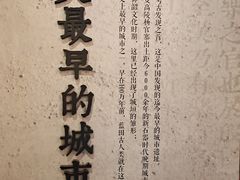 古发现之旅，这是中国发现的迄今最早的城市遗址，
安高陵杨官寨出土距今6000余年的新石器时代晚期城市
韶文化时期，这里已经出现了城垣的雏形；
上最早的城市之一。早在100万年前，蓝田古人类就在这
最早的城市